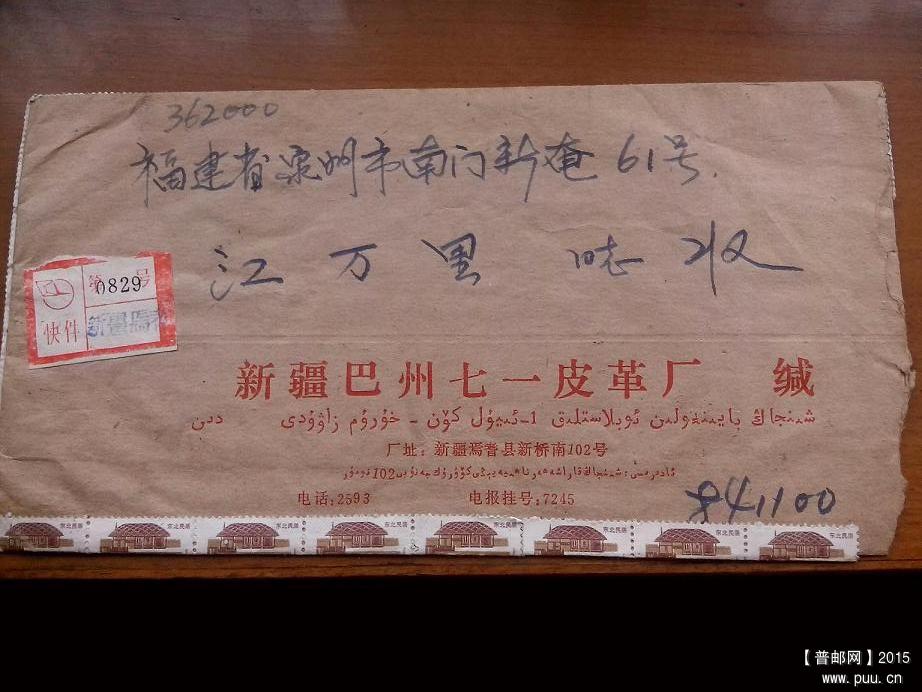 362000
福建省泉州市南门新奄61号.
江万里 同志 收
第0829号
快件 新疆焉耆
新疆巴州七一皮革厂 缄
شىنجاڭ بايىنغولىن ئوبلاستلىق 1-ئىيۇل كۆن - خۇرۇم زاۋۇدى دىن
厂址:新疆焉耆县新桥南102号
电话:2593 电报挂号:7245
841100
东北民居 东北民居 东北民居 东北民居 东北民居 东北民居 东北民居 东北民居
【普邮网】2015
www.puu.cn